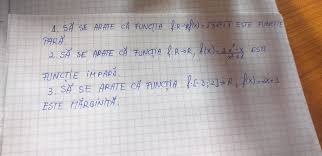 1. SĂ SE ARATE CĂ FUNCȚIA f:R→R f(x)= ESTE FUNCȚIE
PARĂ.
2. SĂ SE ARATE CĂ FUNCȚIA f:R→R, f(x)= ESTE
FUNCȚIE IMPARĂ.
3. SĂ SE ARATE CĂ FUNCȚIA f:[-3;2]→R, f(x)=2x+3
ESTE MĂRGINITĂ.